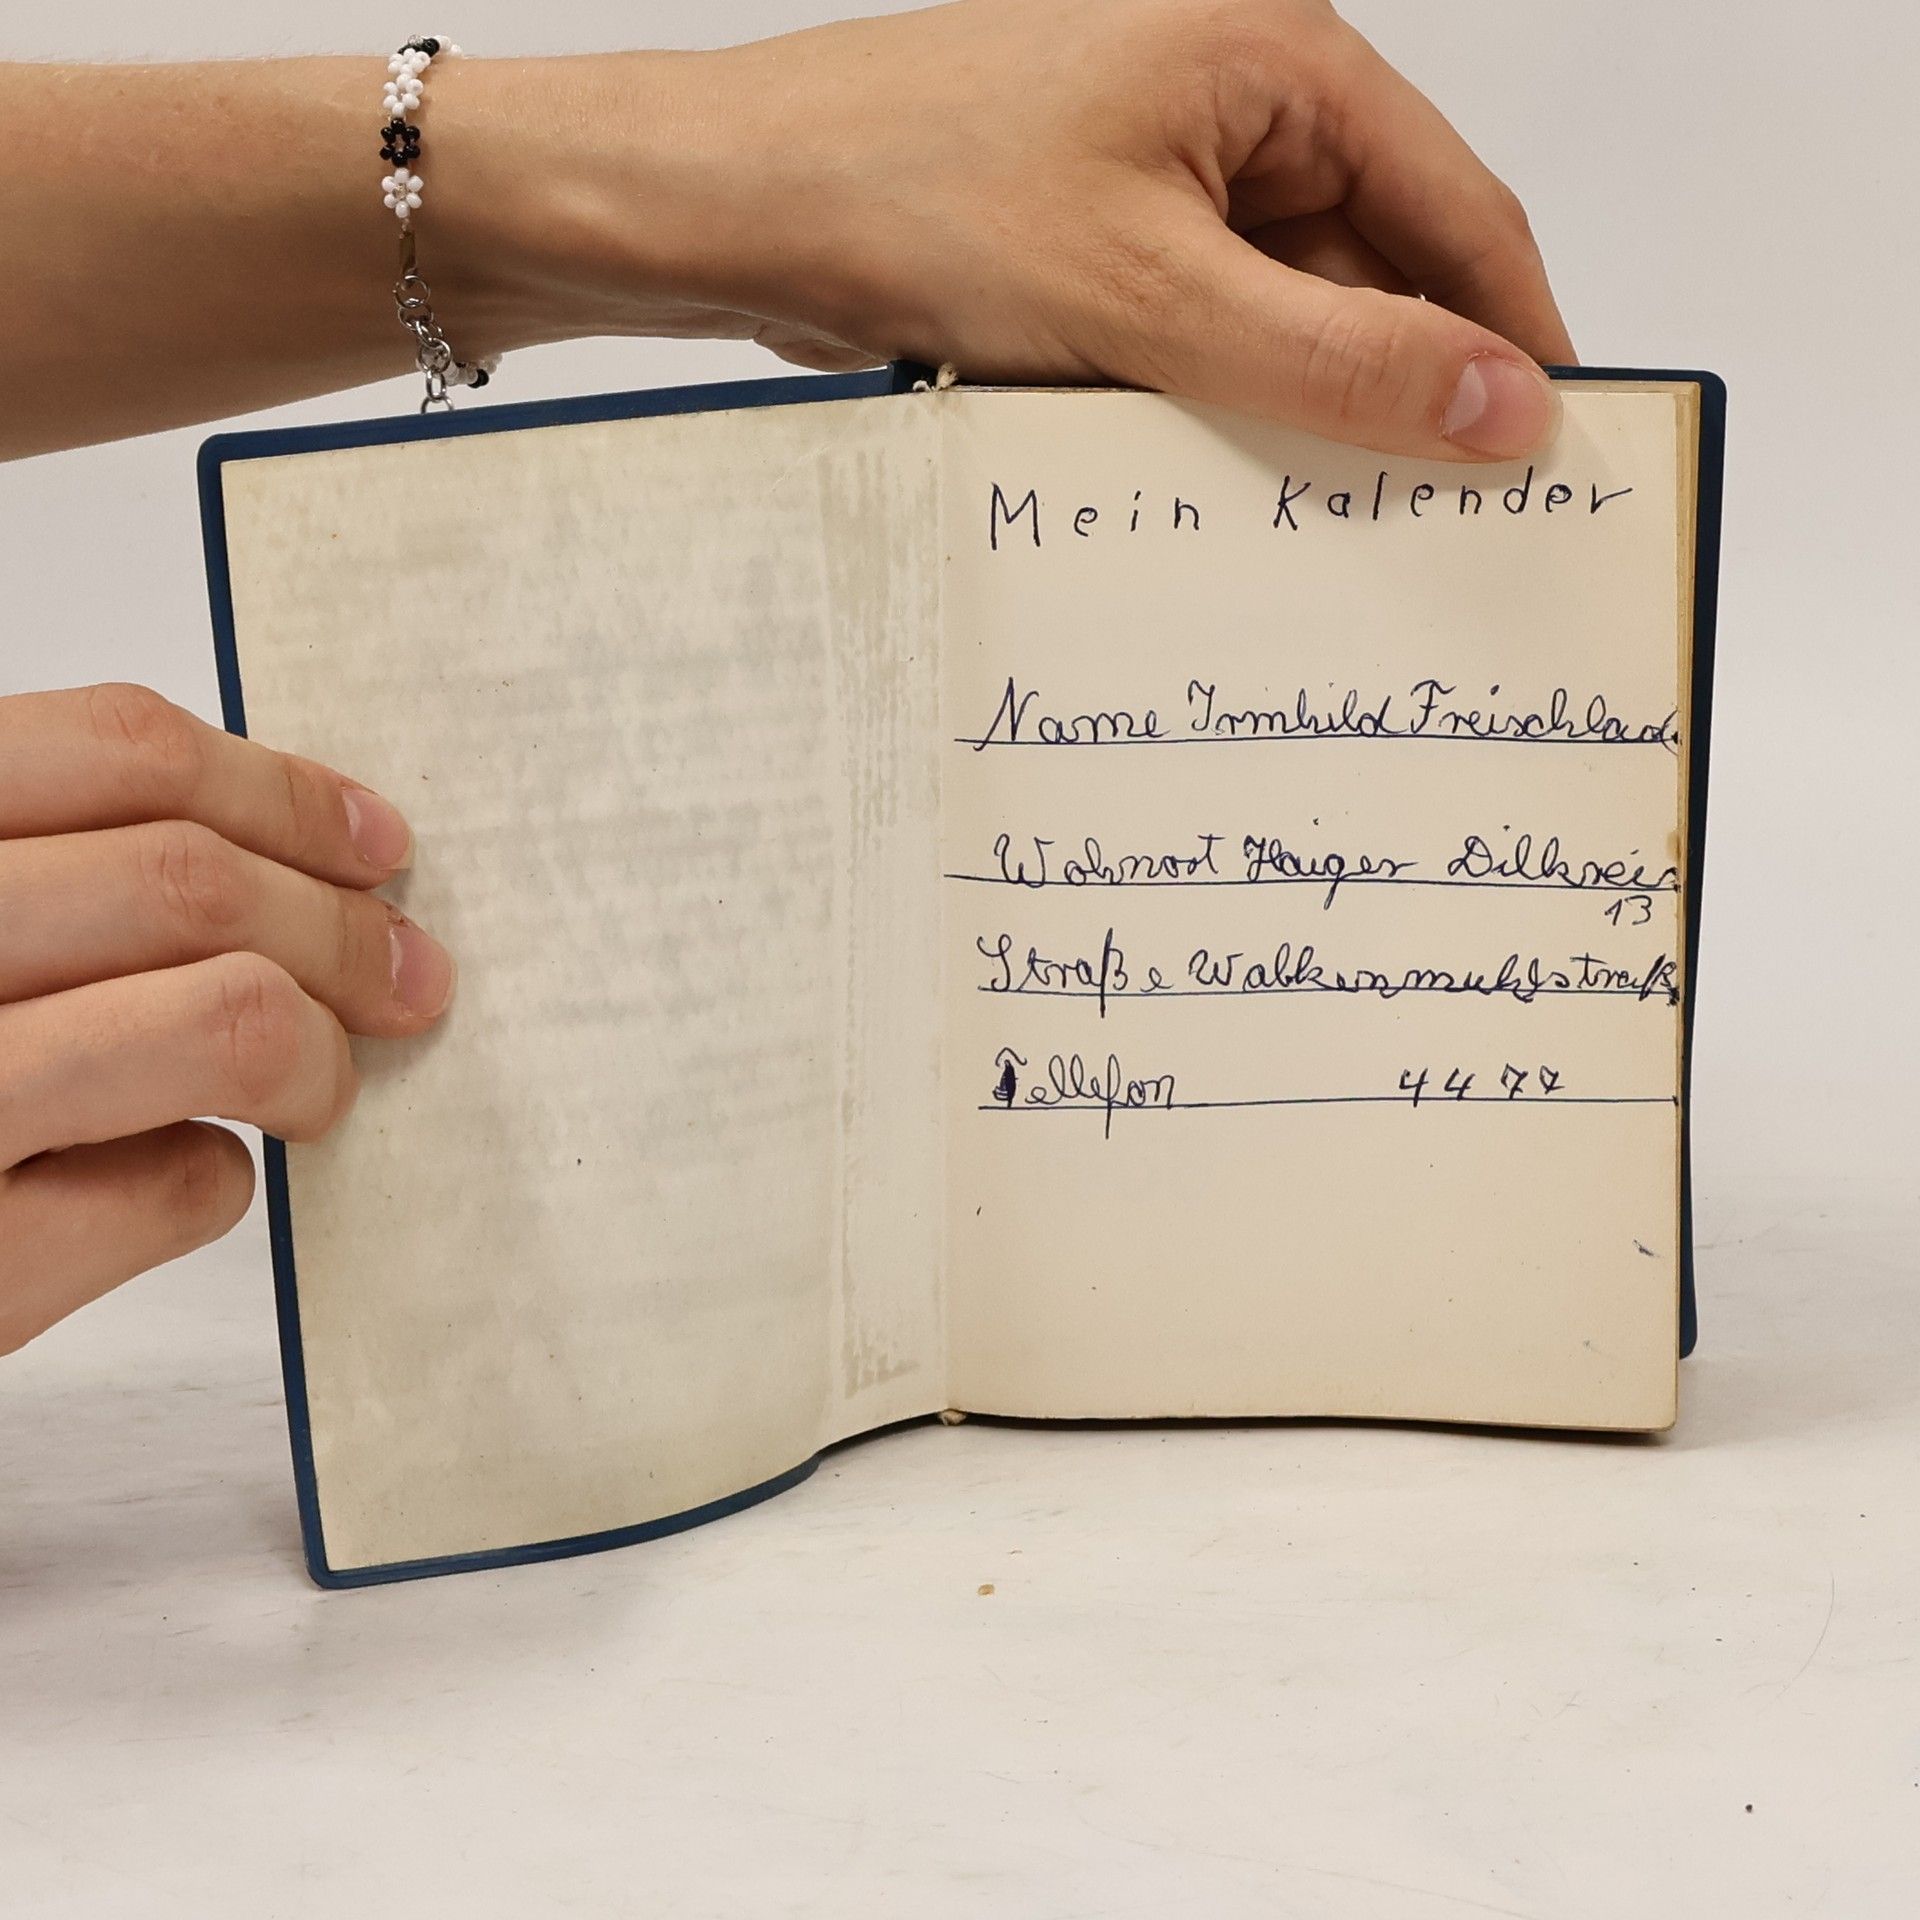 Mein Kalender
Name Irmhild Freischlad
Wohnort Haiger Dillkreis
13
Straße Walkenmühlstraß
Tellefon 4477